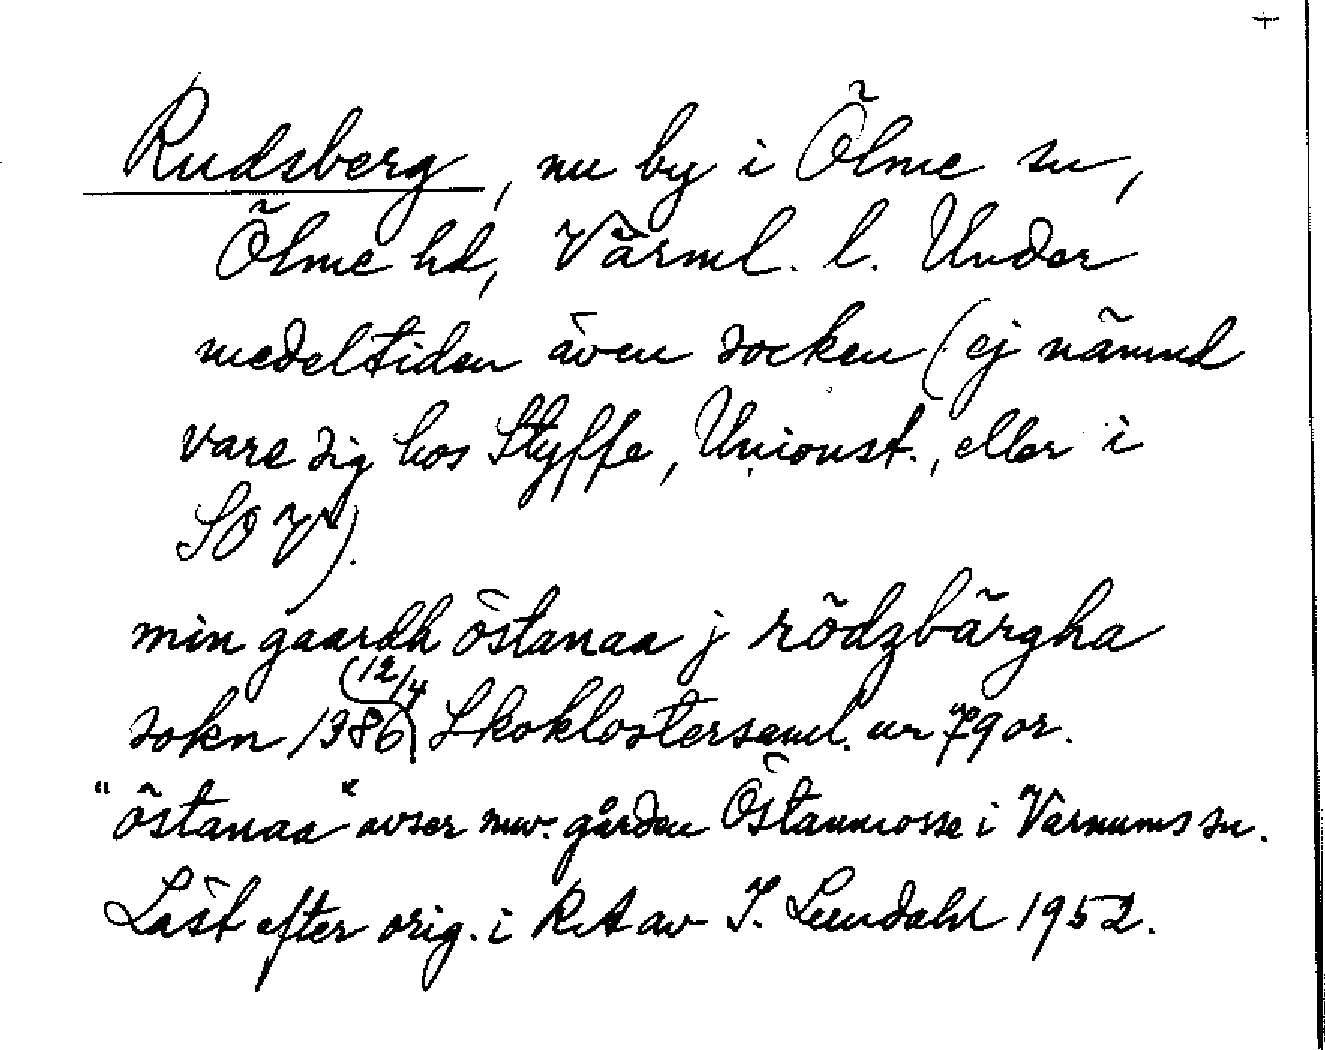 Rudsberg, nu by i Ölme sn,
Ölme hd, Värml. l. Under
medeltiden även socken (ej nämnd
vare sig hos Styffe, Unionst., eller i
SOV).
min gaardh östanaa j rödzbärgha
sokn 1386 (12/4) Skoklostersaml. nr 79 or.
"östanaa" avser nuv. gården Östanmosse i Varnums sn.
Läst efter orig. i RA av I. Lundahl 1952.